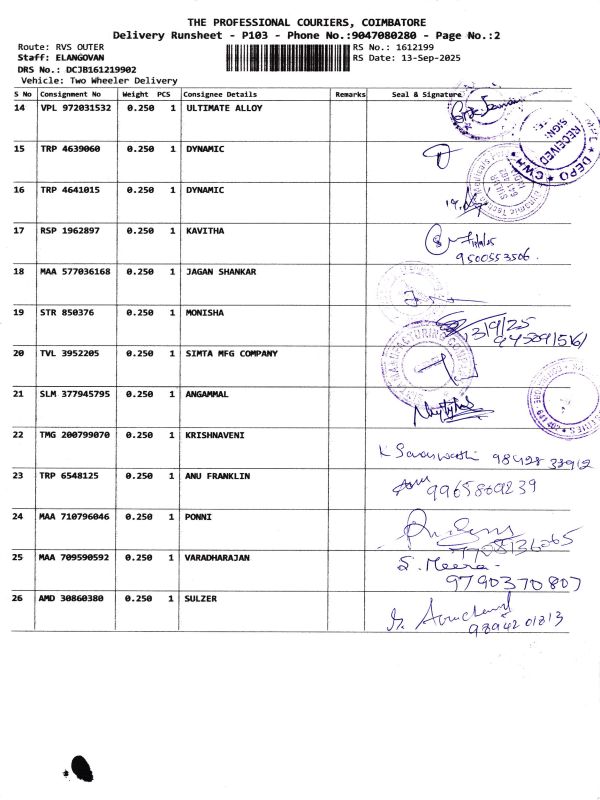 THE PROFESSIONAL COURIERS, COIMBATORE
Delivery Runsheet - P103 - Phone No.:9047080280 - Page No.:2
Route: RVS OUTER RS No.: 1612199
Staff: ELANGOVAN RS Date: 13-Sep-2025
DRS No.: DCJB161219902
Vehicle: Two Wheeler Delivery
S No Consignment No Weight PCS Consignee Details Remarks Seal & Signature
14 VPL 972031532 0.250 1 ULTIMATE ALLOY
RECEIVED
DEPO
15 TRP 4639060 0.250 1 DYNAMIC
16 TRP 4641015 0.250 1 DYNAMIC
17 RSP 1962897 0.250 1 KAVITHA
9500553506.
18 MAA 577036168 0.250 1 JAGAN SHANKAR
19 STR 850376 0.250 1 MONISHA
13/9/25
20 TVL 3952205 0.250 1 SIMTA MFG COMPANY
21 SLM 377945795 0.250 1 ANGAMMAL
22 TMG 200799070 0.250 1 KRISHNAVENI
K Saraswathi 98428 33912
23 TRP 6548125 0.250 1 ANU FRANKLIN
9965869239
24 MAA 710796046 0.250 1 PONNI
7708136065
25 MAA 709590592 0.250 1 VARADHARAJAN
S. Meera
9790370807
26 AMD 30860380 0.250 1 SULZER
98942 01813